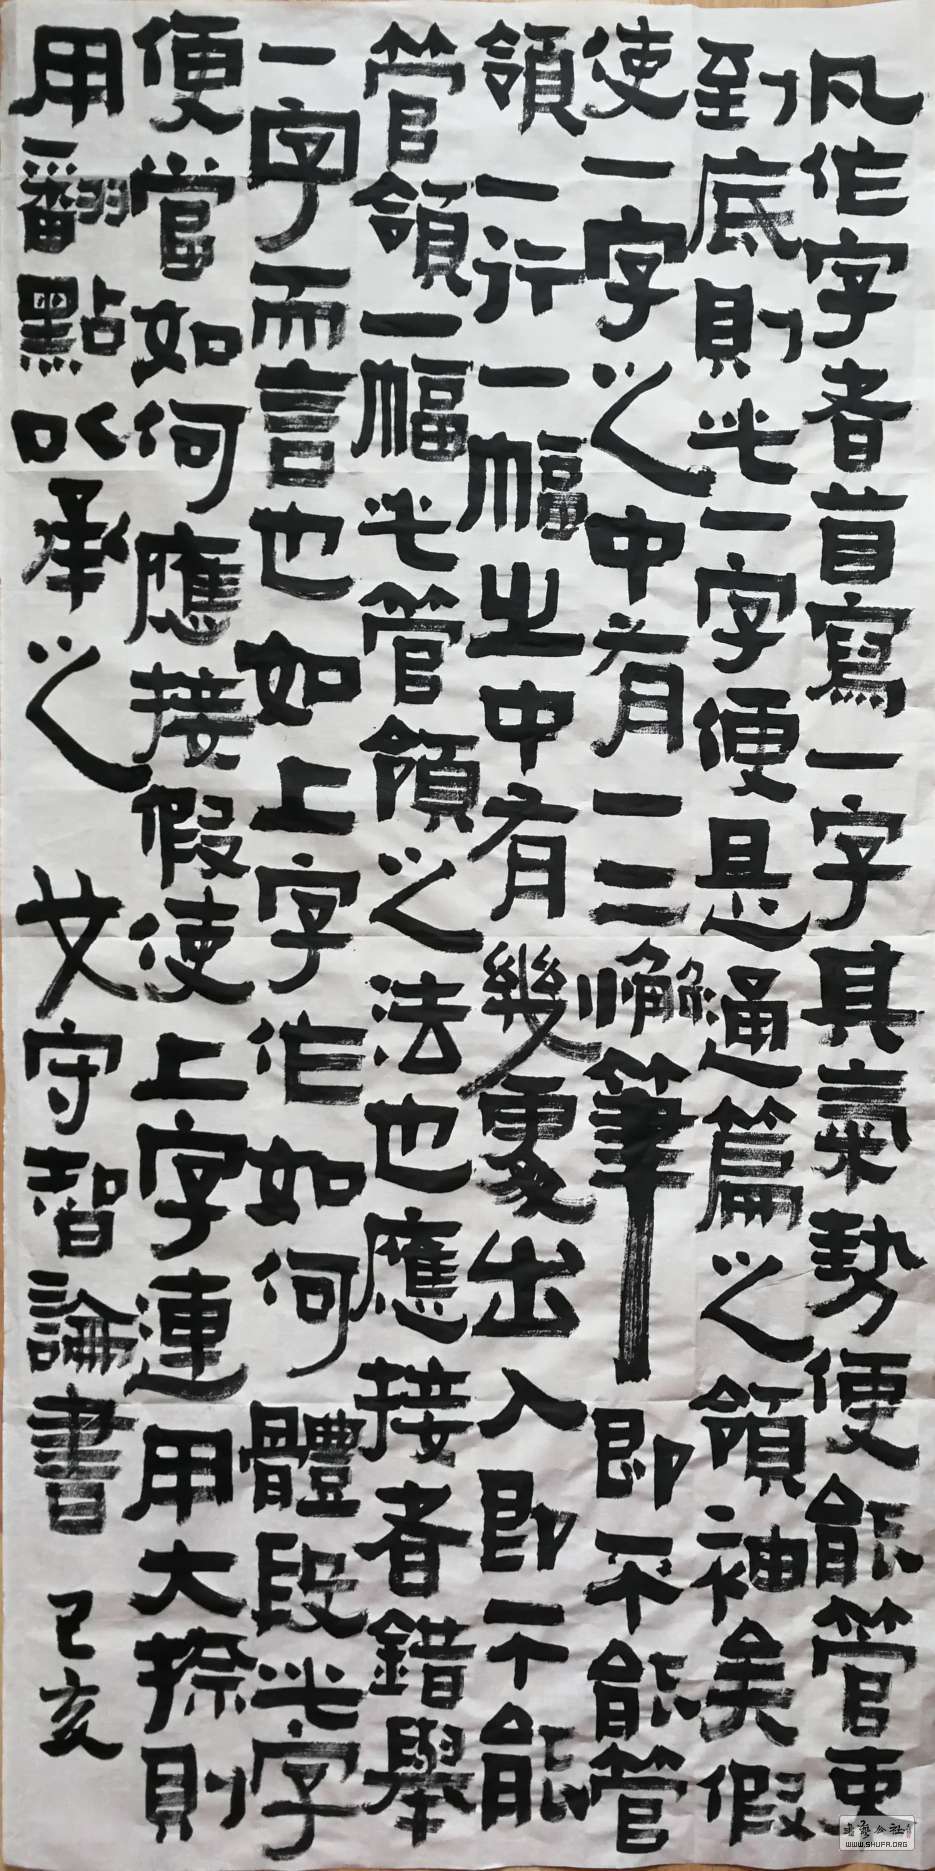 凡作字者首寫一字其氣勢便能管束
到底則此一字便是通篇之領袖矣假
使一字之中有一二懈筆即不能管
領一行一幅之中有幾處出入即不能
管領一幅此管領之法也應接者錯舉
一字而言也如上字作如何體段此字
便當如何應接假使上字連用大捺則
用翻點以承之 艾守智論書 己亥
書藝公社
WWW.SHUFA.ORG